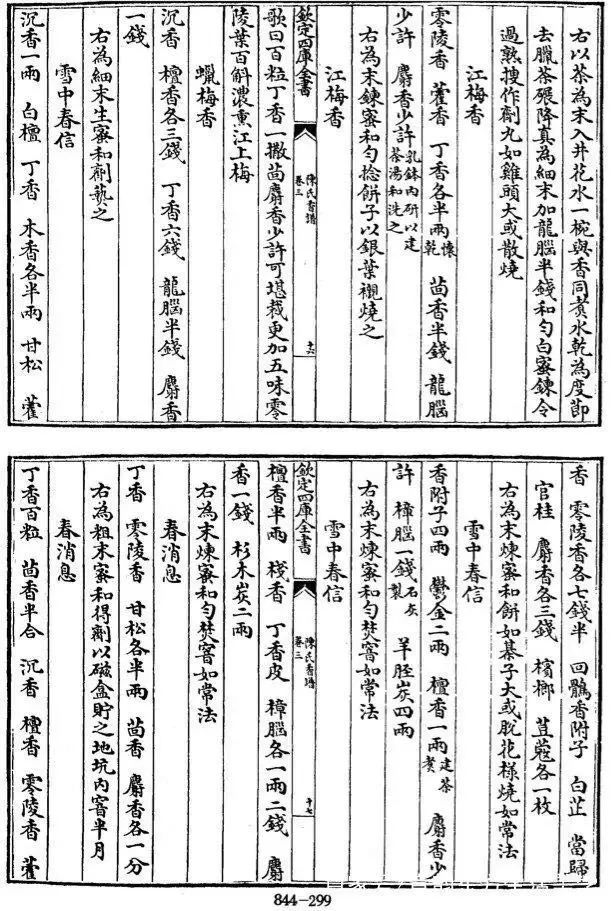 右以茶為末入井花水一椀與香同煑水乾為度節
去臘茶碾降真為細末加龍腦半錢和匀白蜜鍊令
過熟搜作劑丸如雞頭大或散燒
江梅香
零陵香 藿香 丁香各半兩懷乾 茴香半錢 龍腦
少許 麝香少許乳鉢内研以建茶湯和洗之
右為末鍊蜜和匀捻餅子以銀葉襯燒之
江梅香
欽定四庫全書 陳氏香譜 卷三 十六
歌曰百粒丁香一撒茴麝香少許可堪裁更加五味零
陵葉百斛濃熏江上梅
蠟梅香
沉香 檀香各三錢 丁香六錢 龍腦半錢 麝香
一錢
右為細末生蜜和劑爇之
雪中春信
沉香一兩 白檀 丁香 木香各半兩 甘松 藿
香 零陵香各七錢半 回鶻香附子 白芷 當歸
官桂 麝香各三錢 檳榔 荳蔻各一枚
右為末煉蜜和餅如棊子大或脱花様燒如常法
雪中春信
香附子四兩 鬱金二兩 檀香一兩建茶煮 麝香少
許 樟腦一錢石灰製 羊脛炭四兩
右為末煉蜜和匀焚窨如常法
雪中春信
欽定四庫全書 陳氏香譜 卷三 十七
檀香半兩 棧香 丁香皮 樟腦各一兩二錢 麝
香一錢 杉木炭二兩
右為末煉蜜和匀焚窨如常法
春消息
丁香 零陵香 甘松各半兩 茴香 麝香各一分
右為粗末蜜和得劑以磁盒貯之地坑内窨半月
春消息
丁香百粒 茴香半合 沉香 檀香 零陵香 藿
844-299